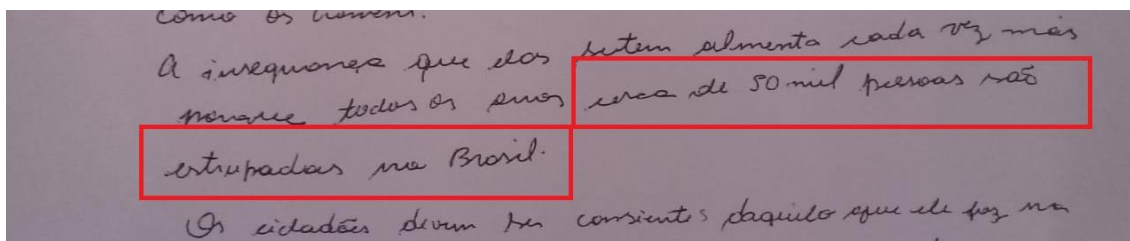 como os homens.
A insegurança que elas sentem almenta cada vez mais
porque todos os anos cerca de 50 mil pessoas são
estrupadas no Brasil.
Os cidadões devem ser consientes daquilo que ele faz na